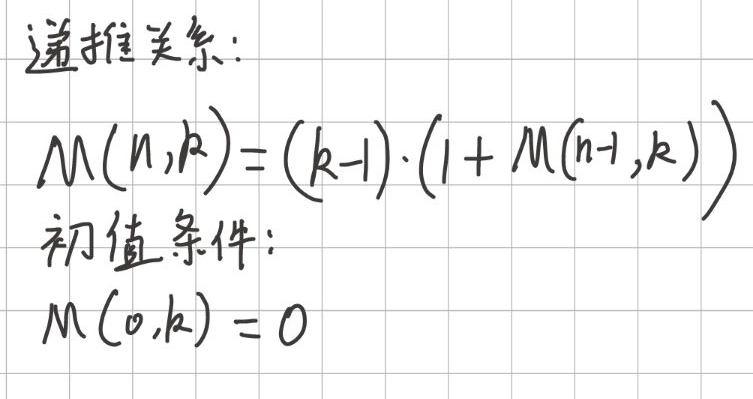 递推关系:
M(n,k)=(k-1)·(1+M(n-1,k))
初值条件:
M(0,k)=0